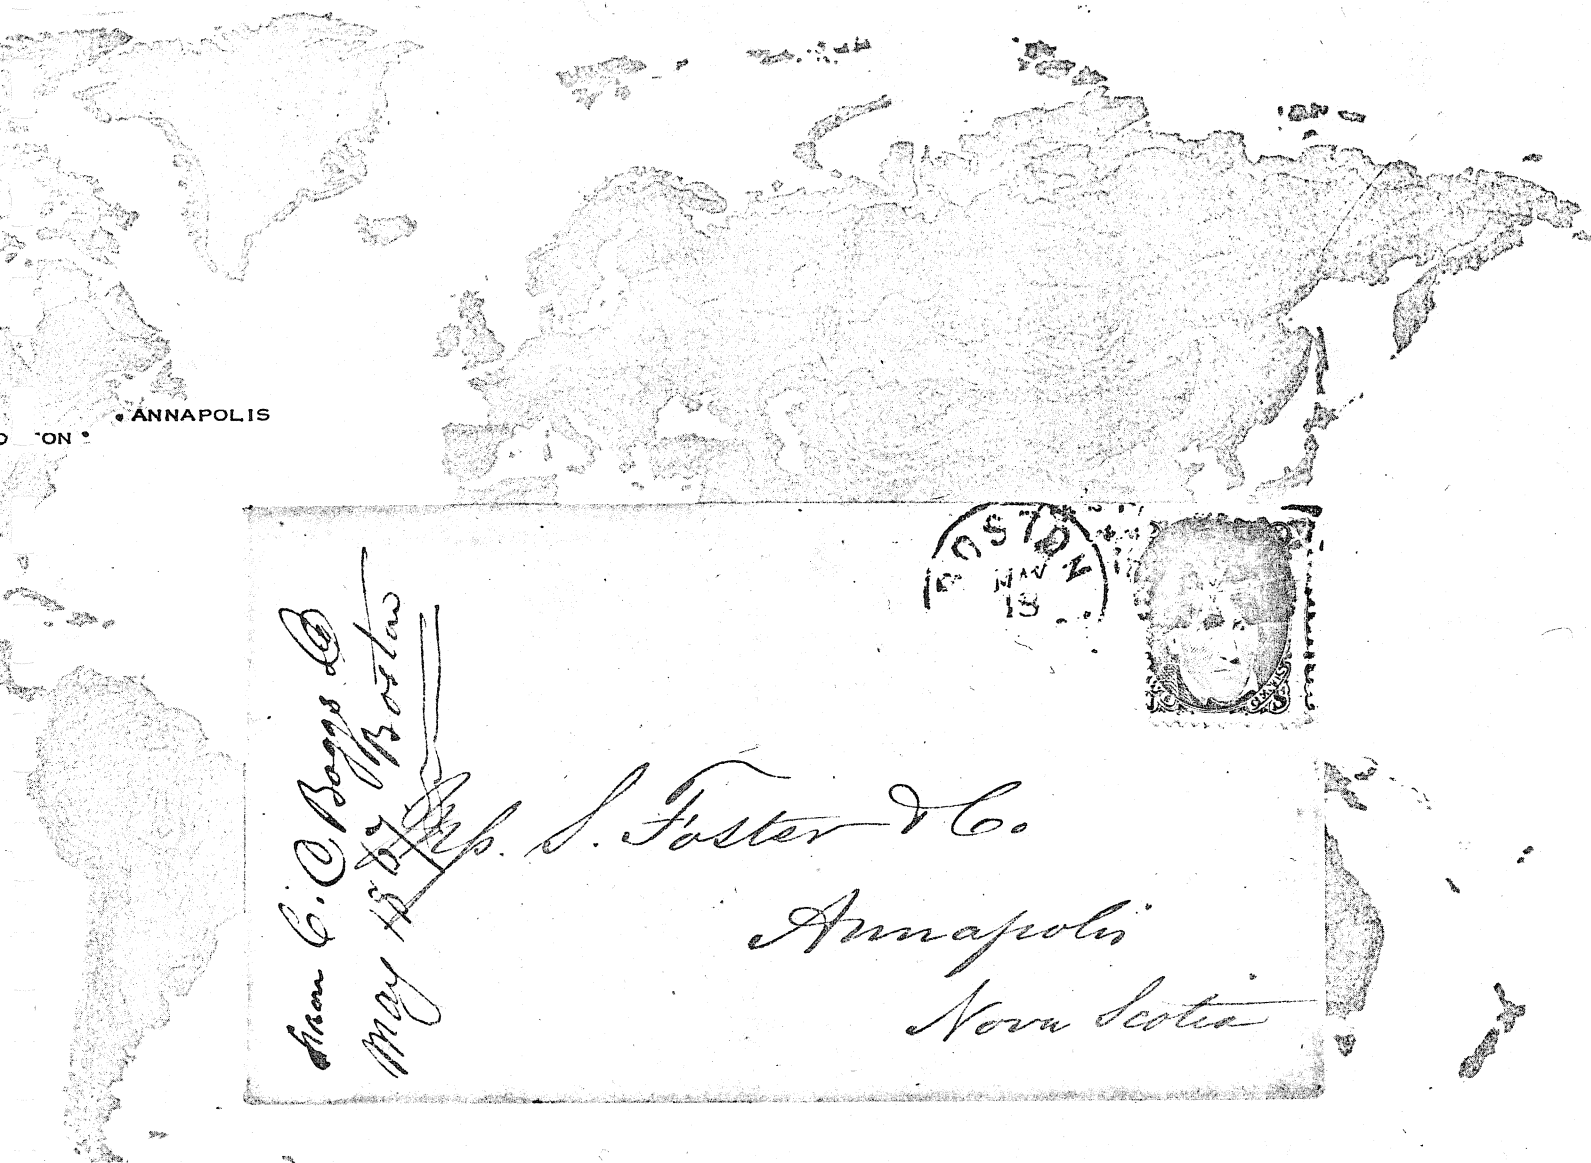 ANNAPOLIS
ON
BOSTON
MAY
18
CENTS
From C. C Boggs & Co
May 18 1867 Boston
Mess. S. Foster & Co.
Annapolis
Nova Scotia